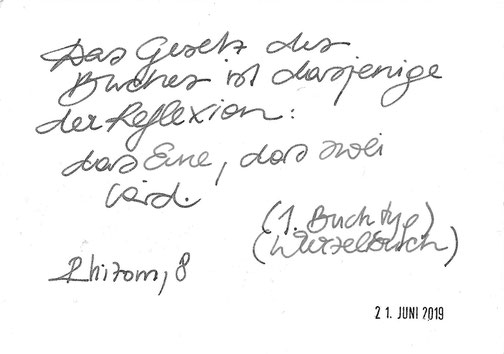 Das Gesetz des
Buches ist dasjenige
der Reflexion:
das Eine, das zwei
wird.
(1. Buchtyp)
(Wurzelbuch)
Rhizom, 8
21. JUNI 2019